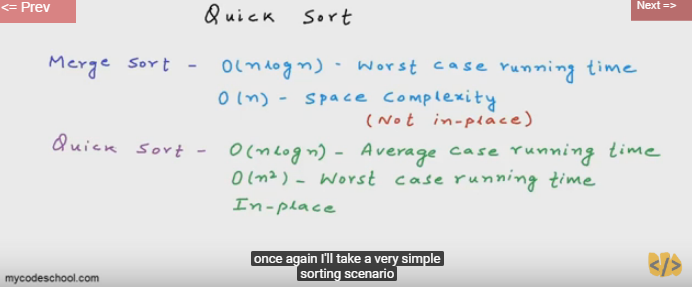 <= Prev
Next =>
Quick Sort
Merge Sort - O(nlogn) - Worst case running time
O(n) - Space Complexity
(Not in-place)
Quick Sort - O(nlogn) - Average case running time
O(n²) - Worst case running time
In-place
once again I'll take a very simple
sorting scenario
</>
mycodeschool.com